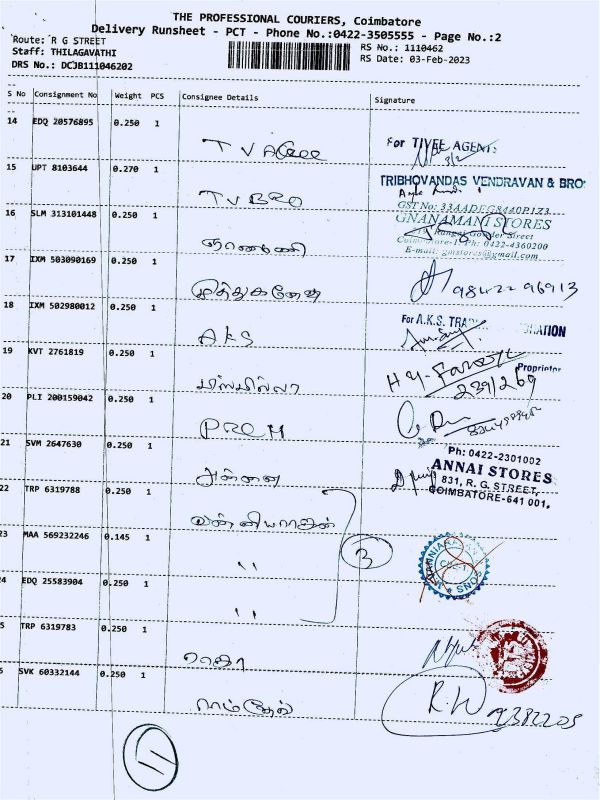 THE PROFESSIONAL COURIERS, Coimbatore
Delivery Runsheet - PCT - Phone No.:0422-3505555 - Page No.:2
Route: R G STREET
Staff: THILAGAVATHI
DRS No.: DCJB111046202
RS No.: 1110462
RS Date: 03-Feb-2023
S No Consignment No Weight PCS Consignee Details Signature
14 EDQ 20576895 0.250 1
For TIYEE AGENT:
3/2
15 UPT 8103644 0.270 1
TV BRO
TRIBHOVANDAS VENDRAVAN & BRO:
GST No: 33AADFG8440P1Z3
16 SLM 313101448 0.250 1
ஞானமணி
GNANAMANI STORES
Street
Coimbatore-1. Ph: 0422-4360200
E-mail: gmstores@gmail.com
17 IXM 503090169 0.250 1
முத்துகணேஷ்
98422 96913
18 IXM 502980012 0.250 1
AKS
For A.K.S.
19 KVT 2761819 0.250 1
பிஸ்மில்லா
Proprietor
239/269
20 PLI 200159042 0.250 1
PREM
21 SVM 2647630 0.250 1
அன்னை
Ph: 0422-2301002
ANNAI STORES
831, R. G. STREET,
COIMBATORE-641 001.
22 TRP 6319788 0.250 1
வன்னியராஜன்
23 MAA 569232246 0.145 1
"
3
24 EDQ 25583904 0.250 1
"
5 TRP 6319783 0.250 1
ராஜா
6 SVK 60332144 0.250 1
ராம்தேவ்
11